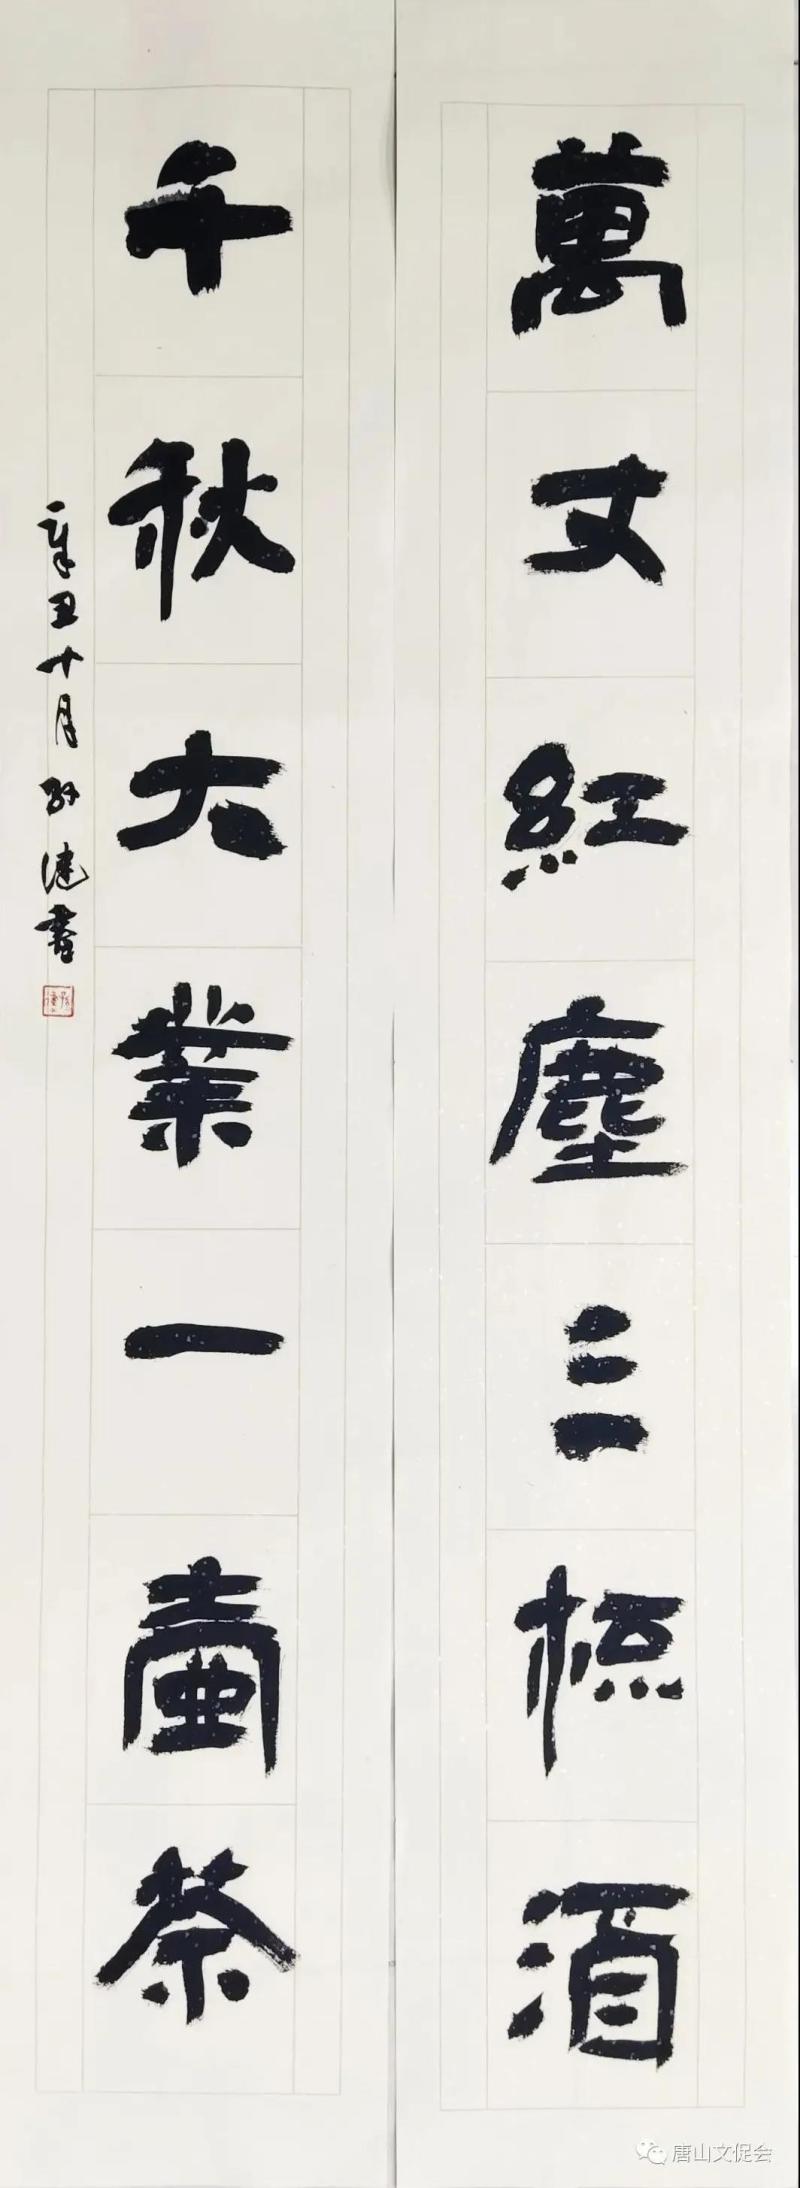 萬丈紅塵三杯酒
千秋大業一壷茶
辛丑十月孙健書
唐山文促会